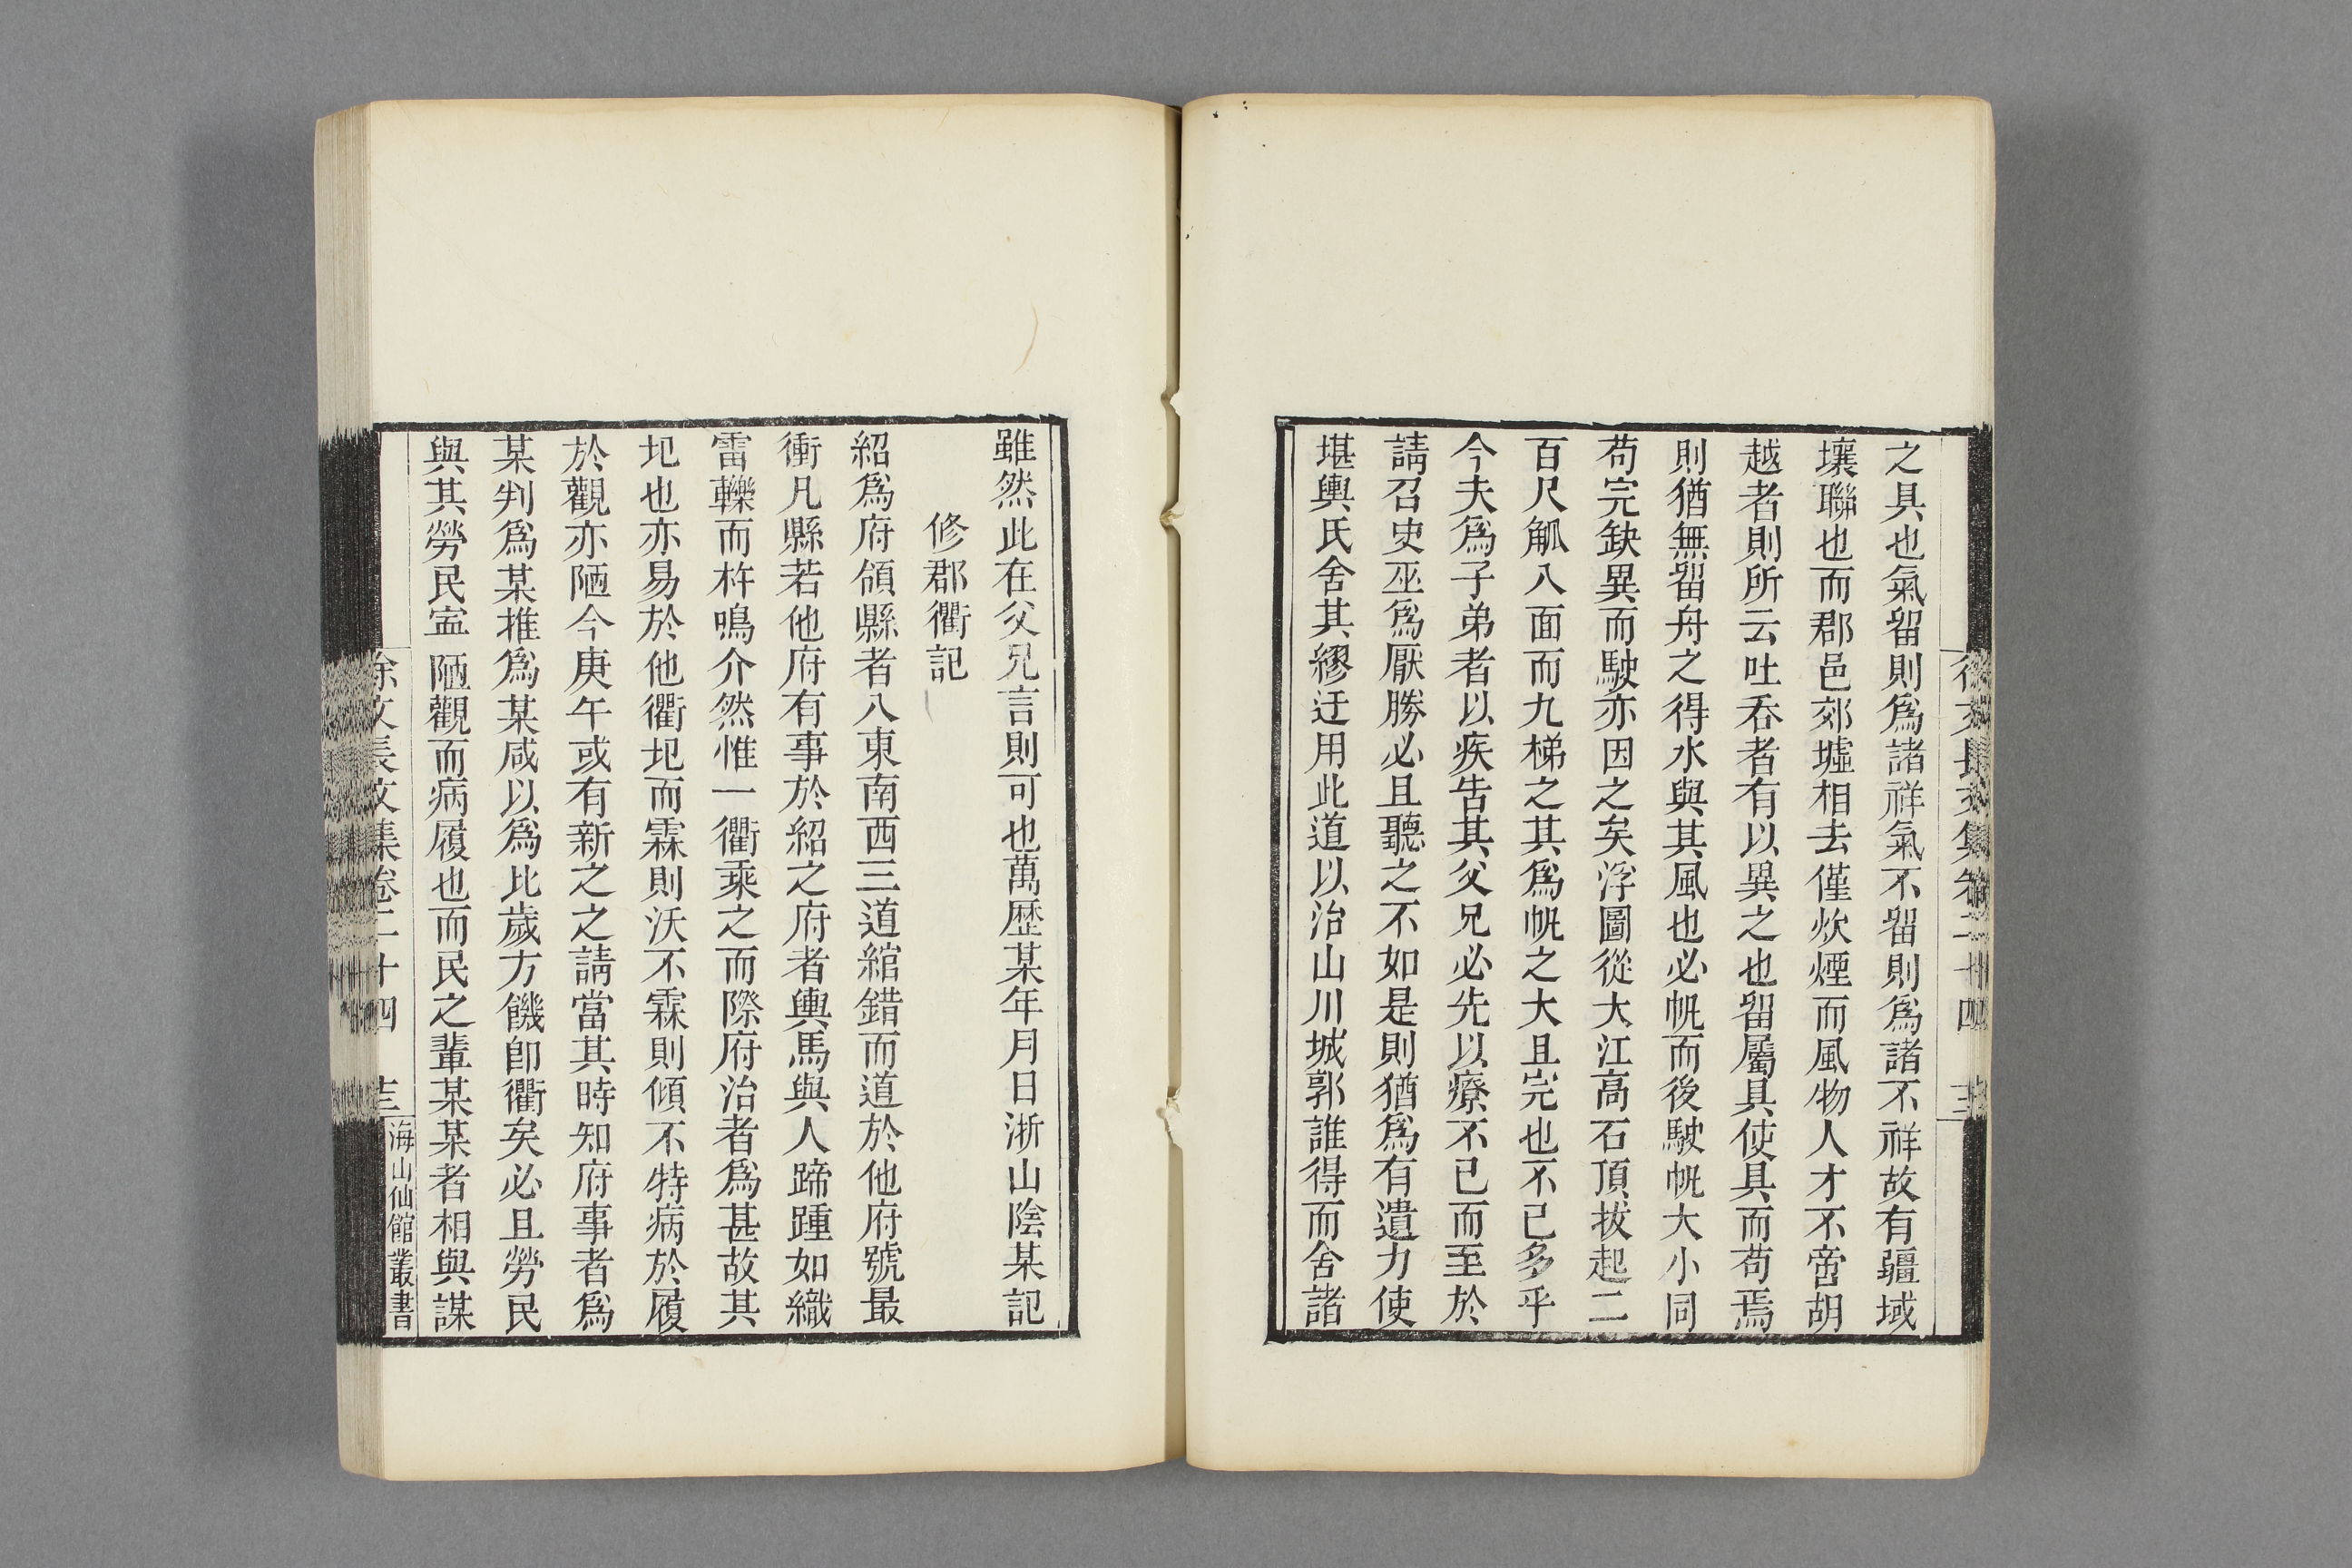 之具也氣留則爲諸祥氣不留則爲諸不祥故有疆域
壤聯也而郡邑郊墟相去僅炊煙而風物人才不啻胡
越者則所云吐吞者有以異之也留屬具使具而苟焉
則猶無留舟之得水與其風也必帆而後駛帆大小同
苟完缺異而駛亦因之矣浮圖從大江高石頂拔起二
百尺觚八面而九梯之其爲帆之大且完也不已多乎
今夫爲子弟者以疾告其父兄必先以療不已而至於
請召史巫爲厭勝必且聽之不如是則猶爲有遺力使
堪輿氏舍其繆迂用此道以治山川城郭誰得而舍諸
徐文長文集卷二十四
雖然此在父兄言則可也萬歷某年月日浙山陰某記
修郡衢記
紹爲府領縣者八東南西三道綰錯而道於他府號最
衝凡縣若他府有事於紹之府者輿馬與人蹄踵如織
雷轢而杵鳴介然惟一衢乘之而際府治者爲甚故其
圯也亦易於他衢圯而霖則沃不霖則傾不特病於履
於觀亦陋今庚午或有新之之請當其時知府事者爲
某判爲某推爲某咸以爲比歲方饑卽衢矣必且勞民
與其勞民寍陋觀而病履也而民之輩某某者相與謀
徐文長文集卷二十四
海山仙館叢書